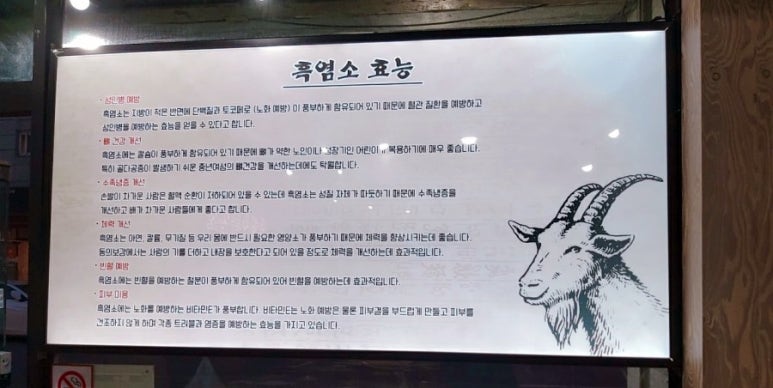 흑염소 효능
• 성인병 예방
흑염소는 지방이 적은 반면에 단백질과 토코페로 (노화 예방) 이 풍부하게 함유되어 있기 때문에 혈관 질환을 예방하고
성인병을 예방하는 효능을 얻을 수 있다고 합니다.
• 뼈 건강 개선
흑염소에는 칼슘이 풍부하게 함유되어 있기 때문에 뼈가 약한 노인이나 성장기인 어린이가 복용하기에 매우 좋습니다.
특히 골다공증이 발생하기 쉬운 중년여성의 뼈건강을 개선하는데에도 탁월합니다.
• 수족냉증 개선
손발이 차가운 사람은 혈액 순환이 저하되어 있을 수 있는데 흑염소는 성질 자체가 따듯하기 때문에 수족냉증을
개선하고 배가 차가운 사람들에게 좋다고 합니다.
• 체력 개선
흑염소는 아연, 칼륨, 무기질 등 우리 몸에 반드시 필요한 영양소가 풍부하기 때문에 체력을 향상시키는데 좋습니다.
동의보감에서는 사람의 기를 더하고 내장을 보호한다고 되어 있을 정도로 체력을 개선하는데 효과적입니다.
• 빈혈 예방
흑염소에는 빈혈을 예방하는 철분이 풍부하게 함유되어 있어 빈혈을 예방하는데 효과적입니다.
• 피부 미용
흑염소에는 노화를 예방하는 비타민E가 풍부합니다. 비타민E는 노화 예방은 물론 피부결을 부드럽게 만들고 피부를
건조하지 않게 하며 각종 트러블과 염증을 예방하는 효능을 가지고 있습니다.